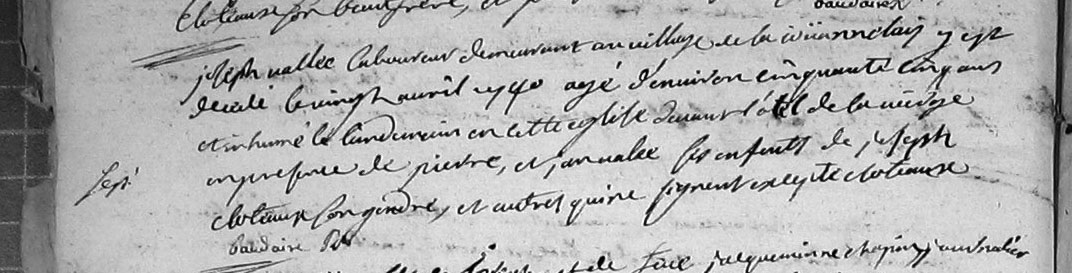 cloteaux son beaufrere, et
baudaire
joseph vallée laboureur demeurant au village de la y est
decédé le vingt avril 1740 agé d'environ cinquante cinq ans
et inhumé le lendemain en cette eglise devant l'otel de la vierge
en presence de pierre, et jan valée ses enfants de joseph
Sept.
cloteaux son gendre, et autres qui ne signent excepté cloteaux
baudaire
et de jacquemine chapin journalier